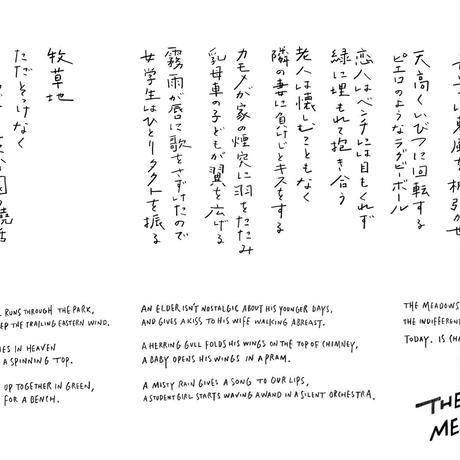 天高くいびつに回転する
ピエロのようなラグビーボール
恋人はベンチには目もくれず
緑に埋もれて抱き合う
老人は懐しむこともなく
隣の妻に負けじとキスをする
カモメが家の煙突に羽をたたみ
乳母車の子どもが翼を広げる
霧雨が唇に歌をさずけたので
女学生はひとりタクトを振る
牧草地
ただそっけなく
RUNS THROUGH THE PARK,
THE TRAILING EASTERN WIND.
IN HEAVEN
A SPINNING TOP.
UP TOGETHER IN GREEN,
FOR A BENCH.
AN ELDER ISN'T NOSTALGIC ABOUT HIS YOUNGER DAYS,
AND GIVES A KISS TO HIS WIFE WALKING ABREAST.
A HERRING GULL FOLDS HIS WINGS ON THE TOP OF CHIMNEY,
A BABY OPENS HIS WINGS IN A PRAM.
A MISTY RAIN GIVES A SONG TO OUR LIPS,
A STUDENT GIRL STARTS WAVING A WAND IN A SILENT ORCHESTRA.
THE MEADOWS
THE INDIFFERENT
TODAY. IS
THE